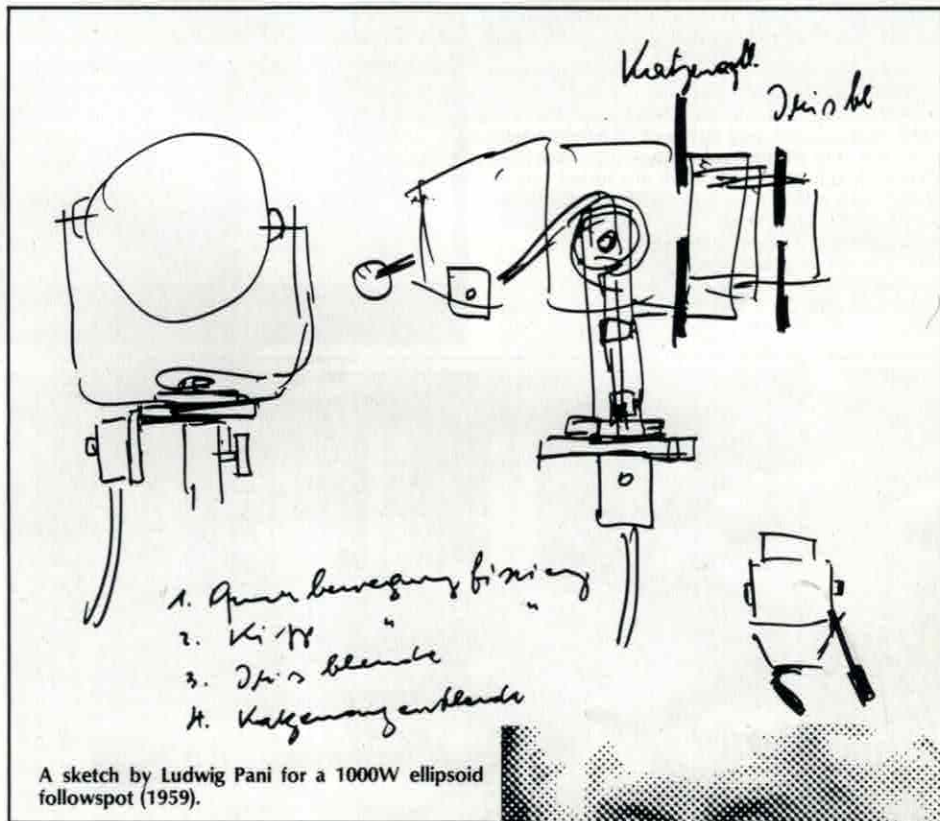 Katzenagbl.
Irisbl
1. Querbewegung fixierung
2. Kipp " "
3. Irisblende
4. Katzenaugenblende
A sketch by Ludwig Pani for a 1000W ellipsoid
followspot (1959).